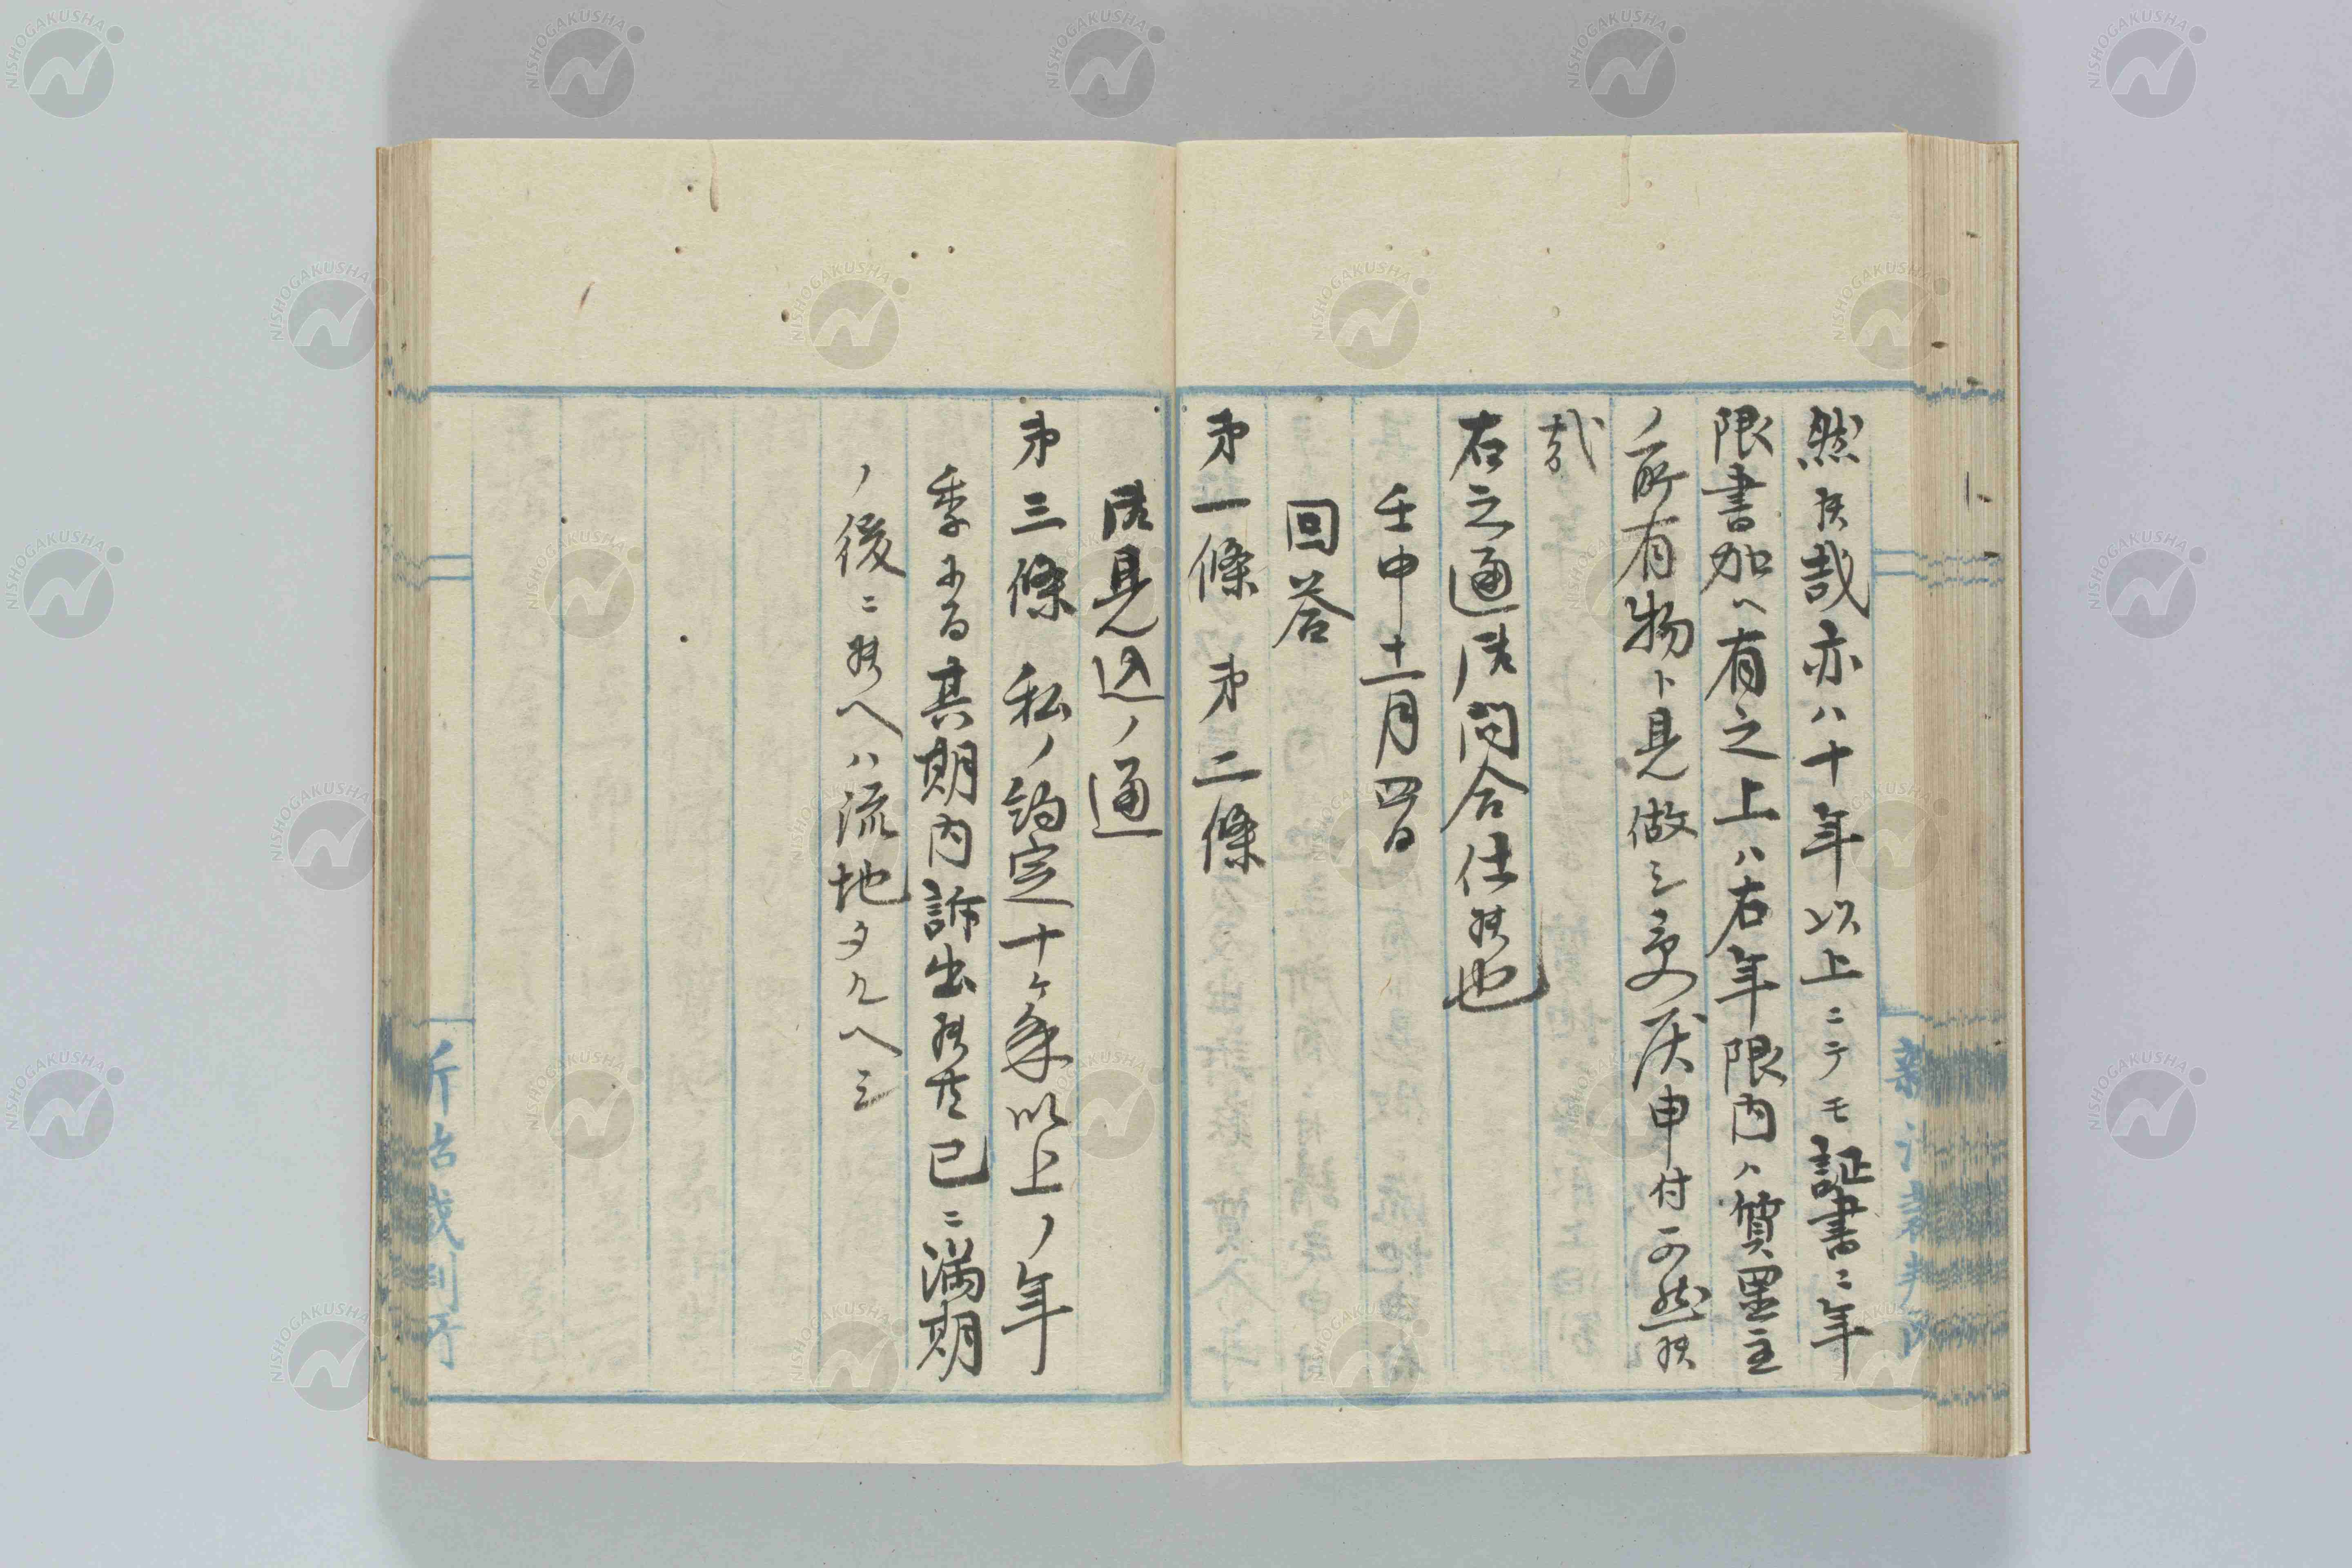 然候哉亦ハ十年以上ニテモ証書ニ年
限書加ヘ有之上ハ右年限内ハ質置主
ノ所有物ト見做シ受戻申付可然候
哉
右之通御問合仕候也
壬申十一月四日
回答
第一條第二條
御見込ノ通
第三條 私ノ約定十ヶ年以上ノ年
季ナル其期内訴出候共已ニ満期
ノ後ニ候ヘハ流地タルヘシ
NISHOGAKUSHA